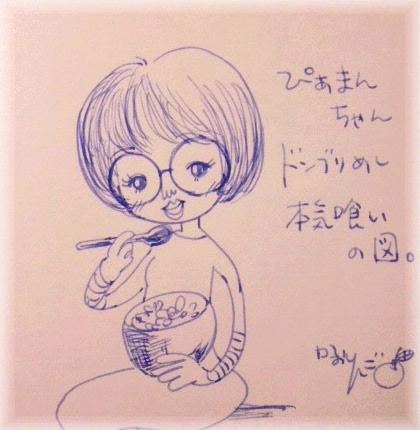 ぴあまん
ちゃん
ドンブリめし
本気喰い
の図。